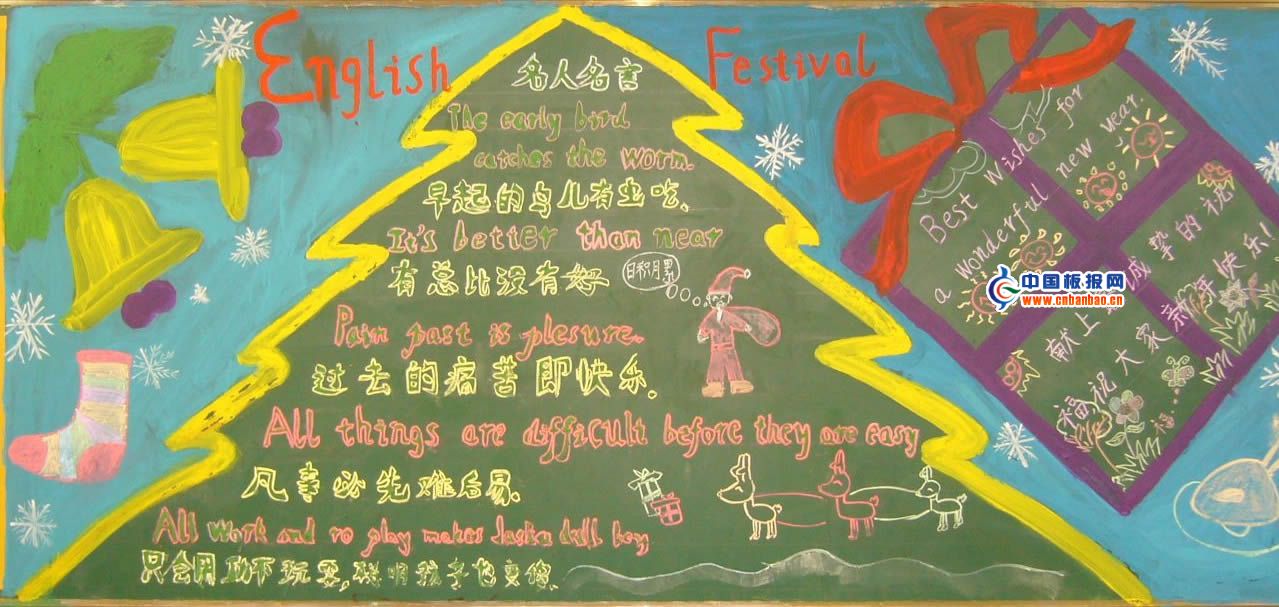 English Festival
名人名言
The early bird
catches the worm.
早起的鸟儿有虫吃.
It's better than near
有总比没有好
日积月累
Pain past is plesure.
过去的痛苦即快乐.
All things are difficult before they are easy
凡事必先难后易.
All work and ro play makes dull boy
只会用功不玩耍,聪明孩子也变傻.
Best Wishes for
a wonderful new year.
献上 诚挚的祝
福祝大家新年快乐!
中国板报网
www.cnbanbao.cn